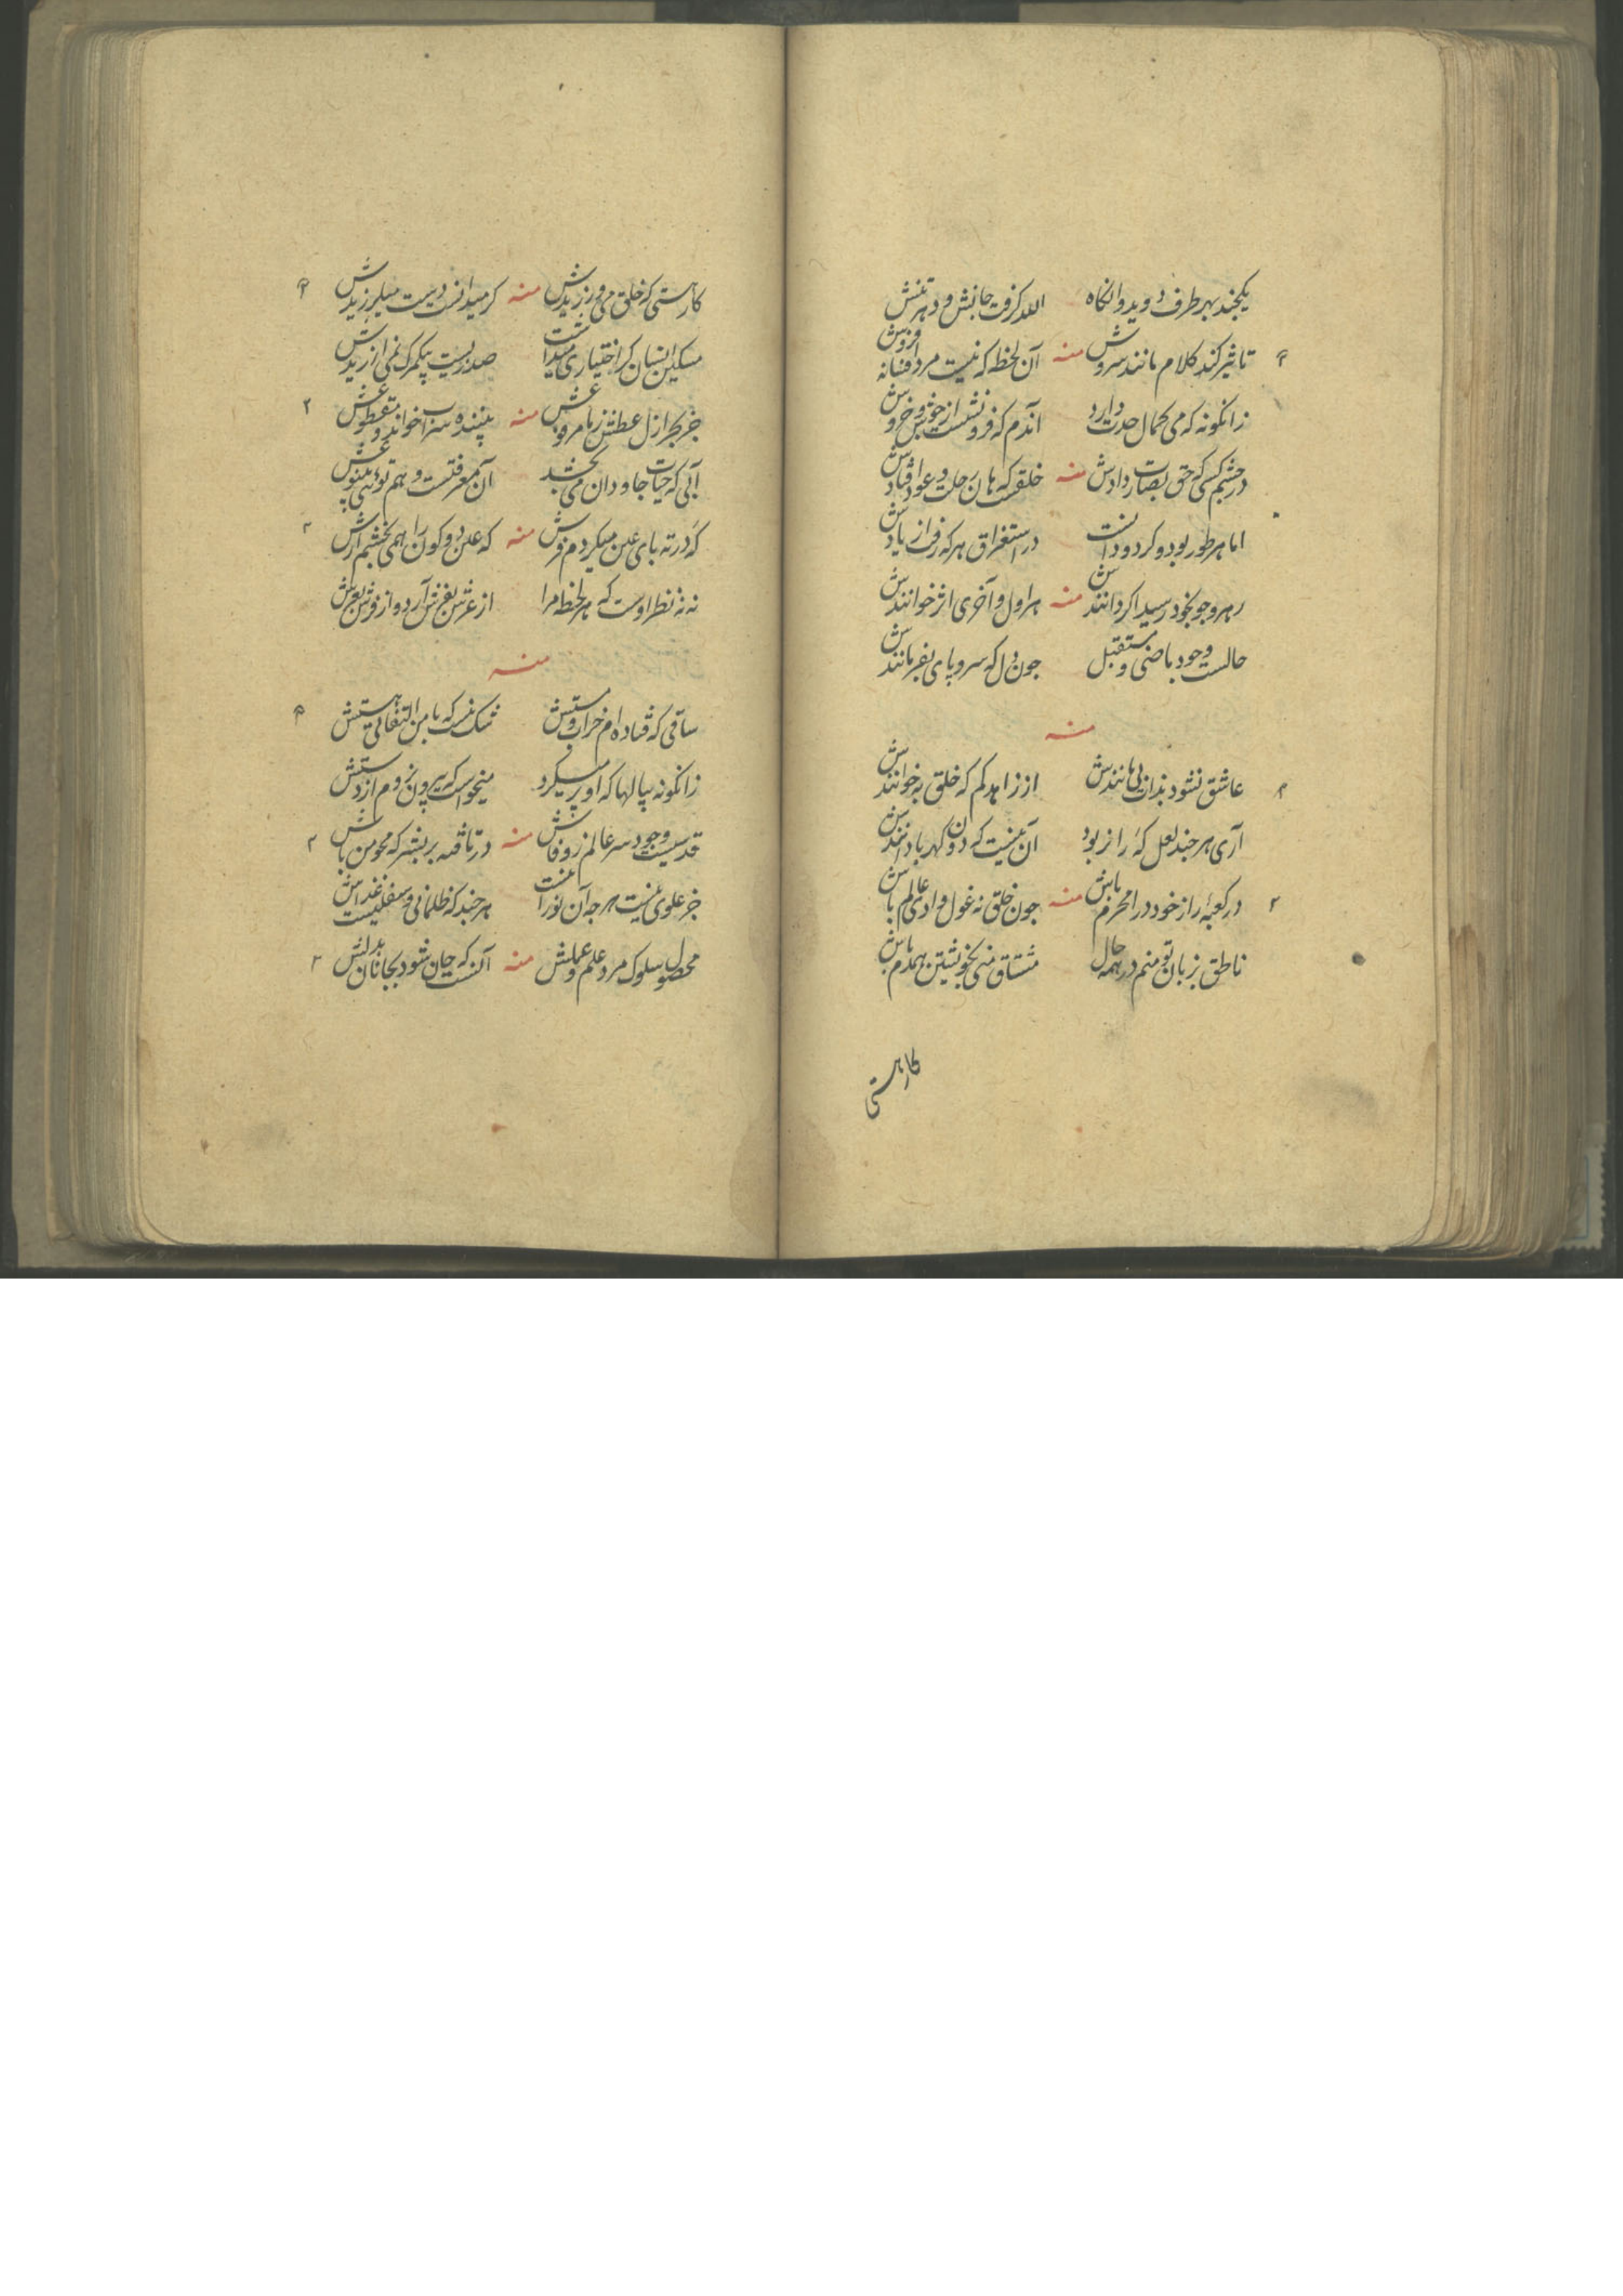 یکچند بهر طرف دوید وانگاه الله گرفت جانش و دهر تنش
تاثیر کند کلام مانند سروش منه آن لحظه که نیست مرد افسانه فروش
زانگونه که می کمال حدت دارد آندم که فرو نشست از جوش و خروش
در چشم کسی که حق بصارت دادش منه خلقست که
اما هر طور بود و کرد و دانست در استغراق هر که رفت از یادش
رهرو چو بخود رسید اگر دانندش منه هر اول و آخری اثر خوانندش
حالست وجود ماضی و مستقبل چون دل که سر و پای بفرمانندش
منه
عاشق نشود بذات بی مانندش از زاهد کم که خلق به خوانندش
آری هر چند لعل که را نربود آن نیست که دون کهربا دانندش
در کعبه راز خود درا محرم باش منه چون خلق نه غول وادی عالم باش
ناطق بزبان تو منم در همه حال مشتاق منی بخویشتن همدم باش
کار هستی
کار هستی که خلق می ورزیدش منه گر میدانست دست میلرزیدش
مسکین انسان گر اختیاری میداشت صد زیست بیک مرگ نمی ارزیدش
جز بحر ازل منه
آبی که حیات جاودان می بخشد آن معرفتست و هم توئی
که در ته پای عین میکردم فرش منه که عین دو کون را همی بخشم ارش
نه نه نظر اوست که هر لحظه مرا از عرش بفرش آرد و از فرش بعرش
منه
ساقی که فتاده ام خراب و مستش شک نیست که با من التفاتی هستش
زانگونه پیالها که او پر میکرد میخواست که بیرون نروم از دستش
قدسیست وجود سر عالم ز وفاش منه در تافته بر بشر که محو من باش
جز علوی نیست هر چه آن نور آنست هر چند که ظلمانی و سفلیست غذاش
محصول سلوک مرد علم و عملش منه آنست که جان شود بجانان بدلش